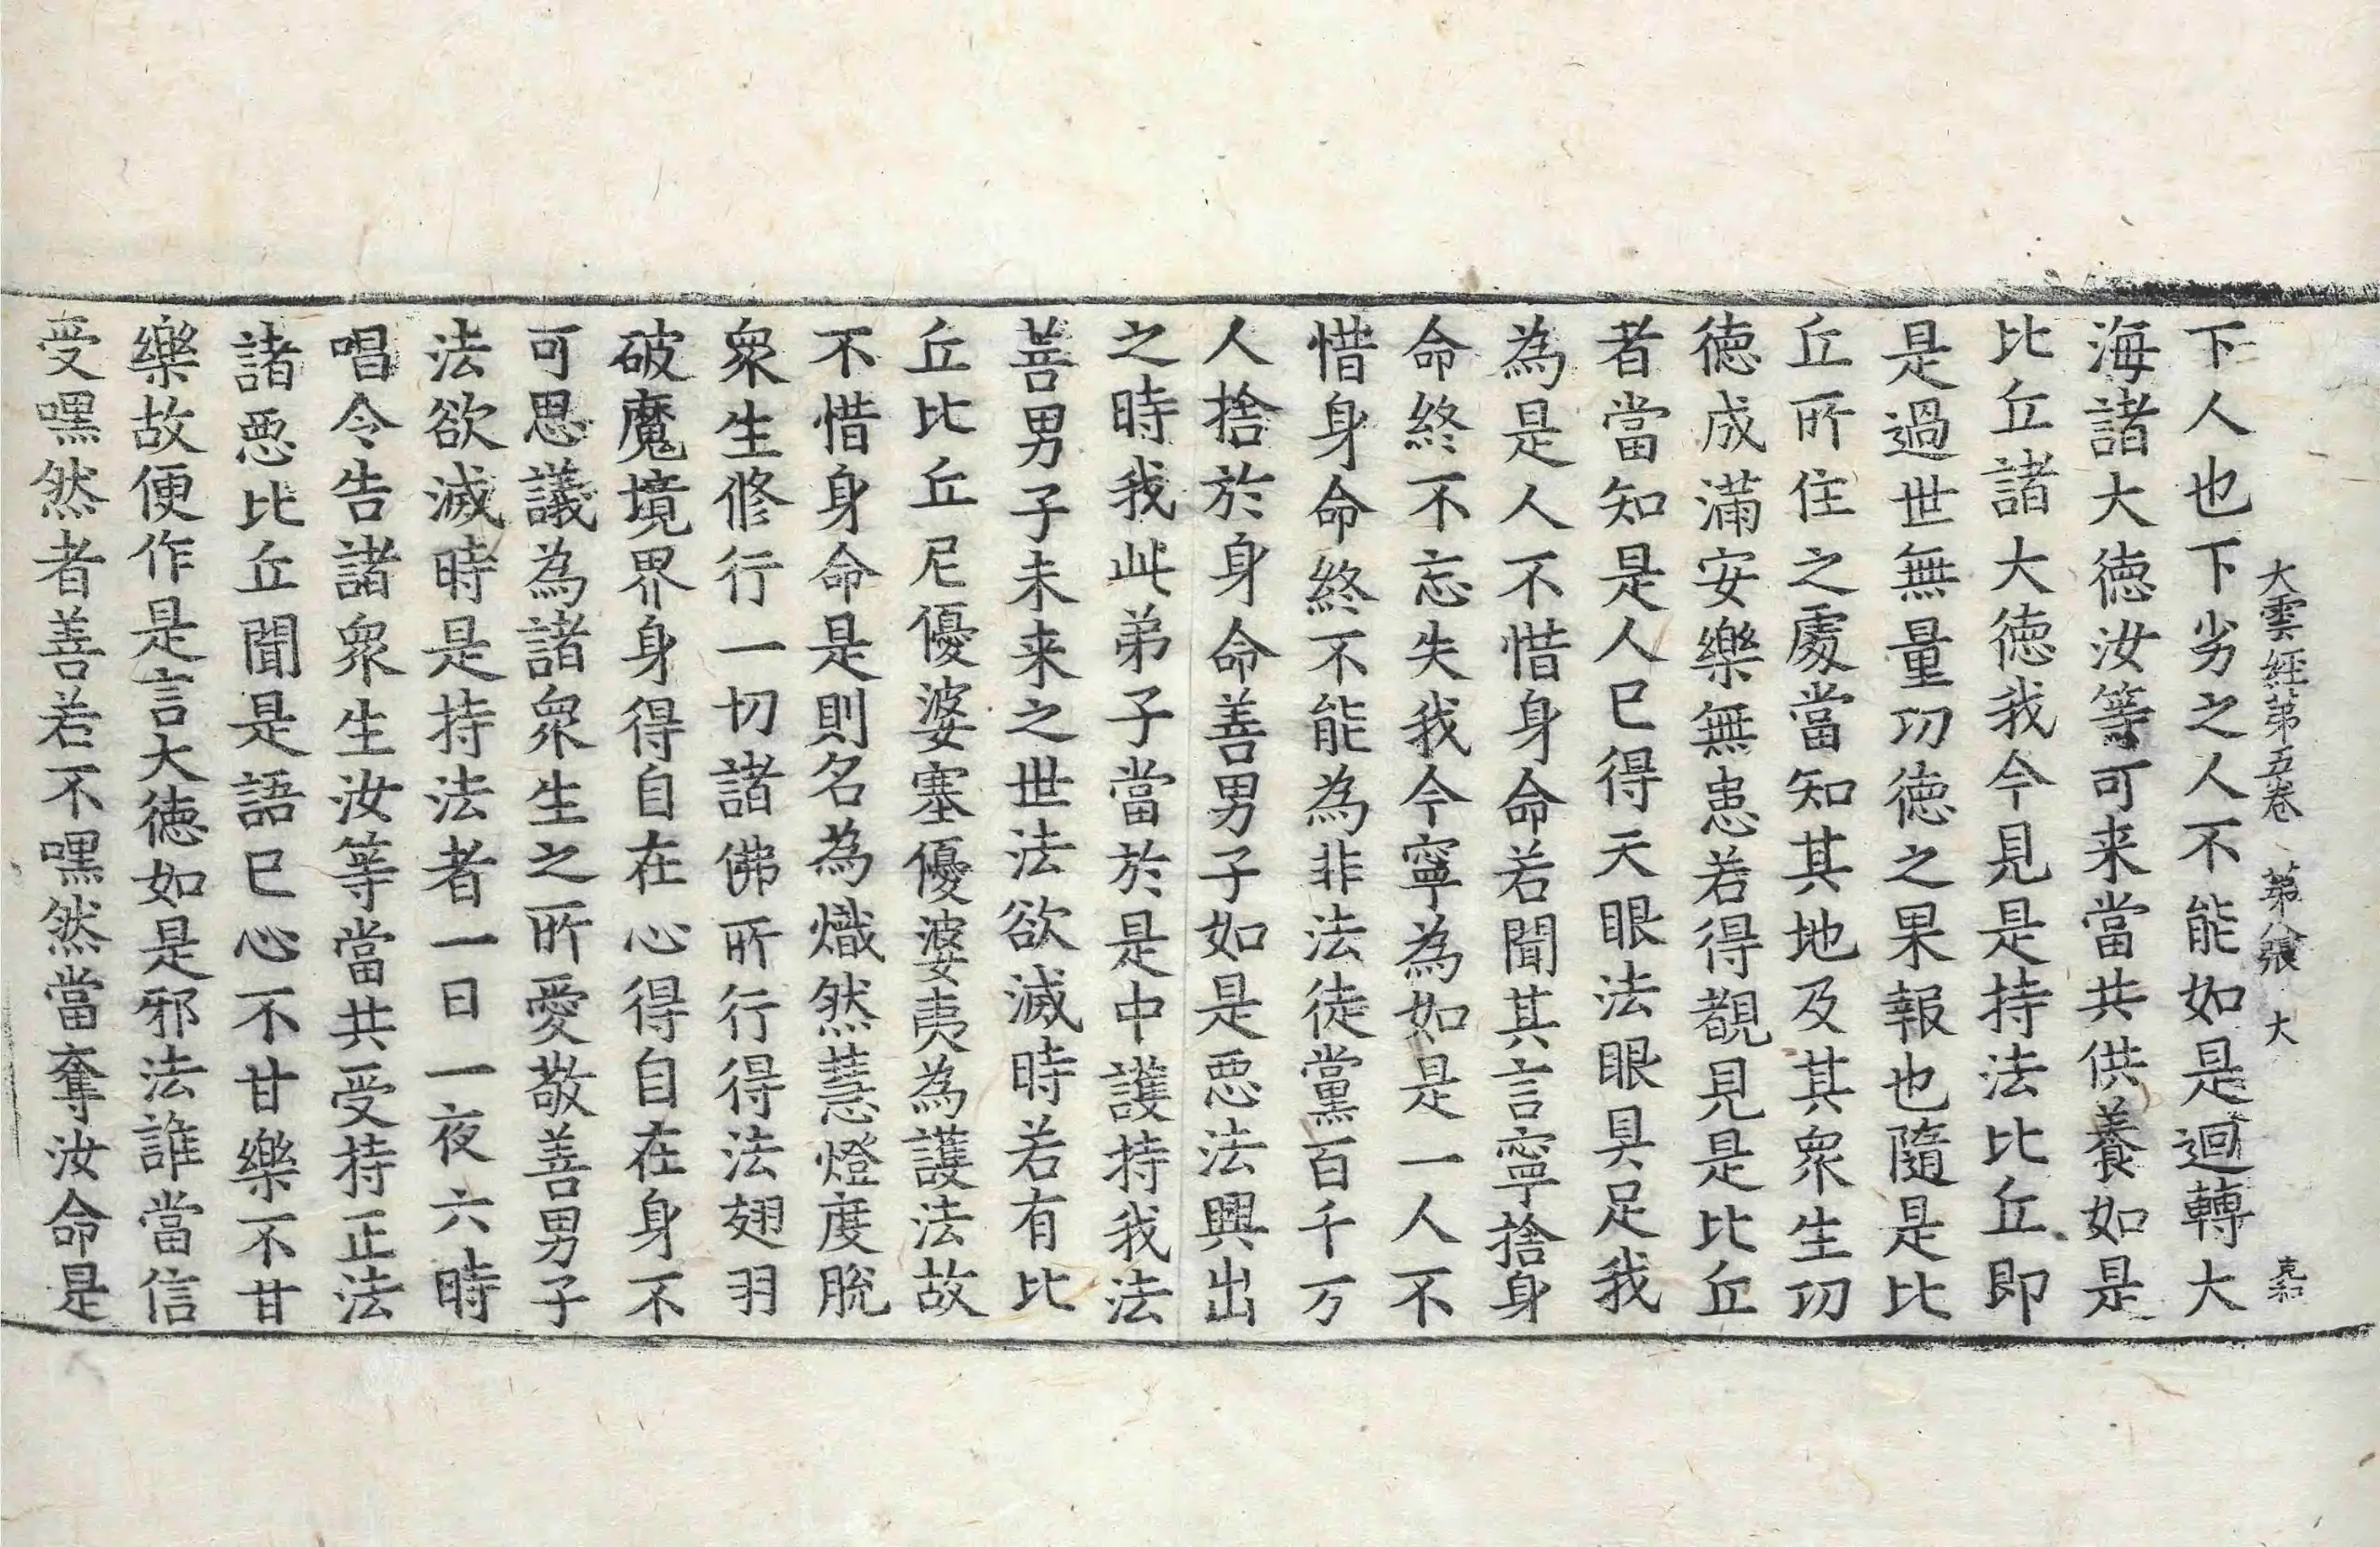 大雲經第五卷 第八張 大
下人也下劣之人不能如是迴轉大
海諸大徳汝等可来當共供養如是
比丘諸大徳我今見是持法比丘即
是過世無量功徳之果報也隨是比
丘所住之處當知其地及其衆生功
徳成滿安樂無患若得覩見是比丘
者當知是人已得天眼法眼具足我
為是人不惜身命若聞其言寧捨身
命終不忘失我今寧為如是一人不
惜身命終不能為非法徒黨百千万
人捨於身命善男子如是惡法興出
之時我此弟子當於是中護持我法
善男子未来之世法欲滅時若有比
丘比丘尼優婆塞優婆夷為護法故
不惜身命是則名為熾然慧燈度脫
衆生修行一切諸佛所行得法翅羽
破魔境界身得自在心得自在身不
可思議為諸衆生之所愛敬善男子
法欲滅時是持法者一日一夜六時
唱令告諸衆生汝等當共受持正法
諸惡比丘聞是語已心不甘樂不甘
樂故便作是言大徳如是邪法誰當信
受嘿然者善若不嘿然當奪汝命是